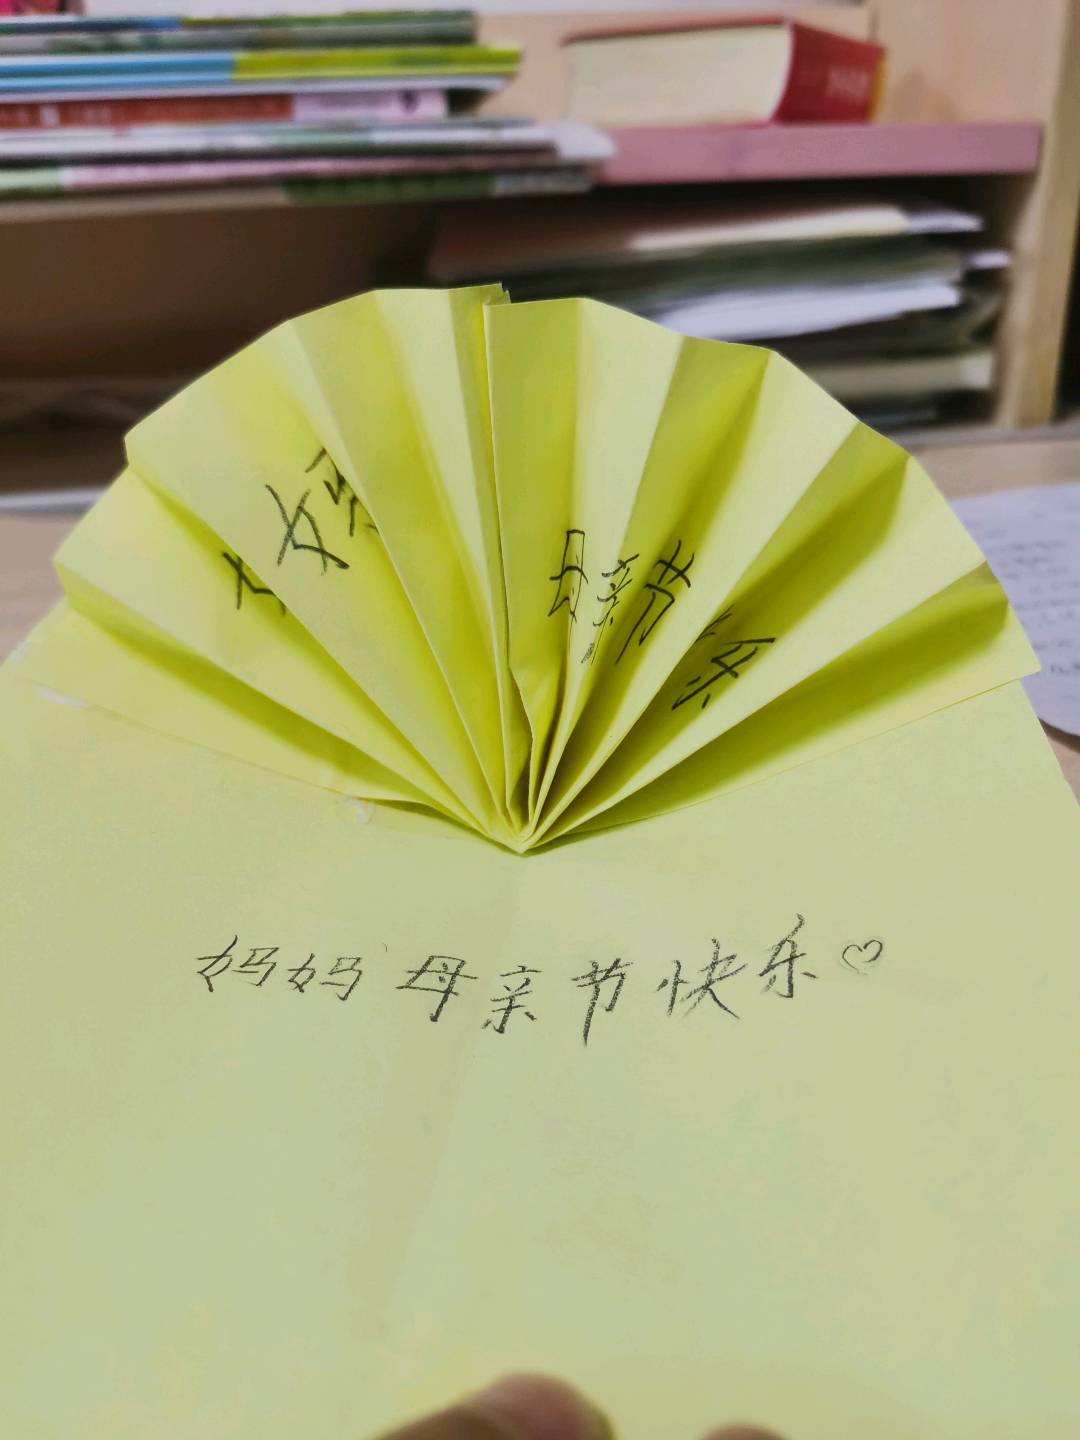 母亲节
妈妈 母亲节快乐♡